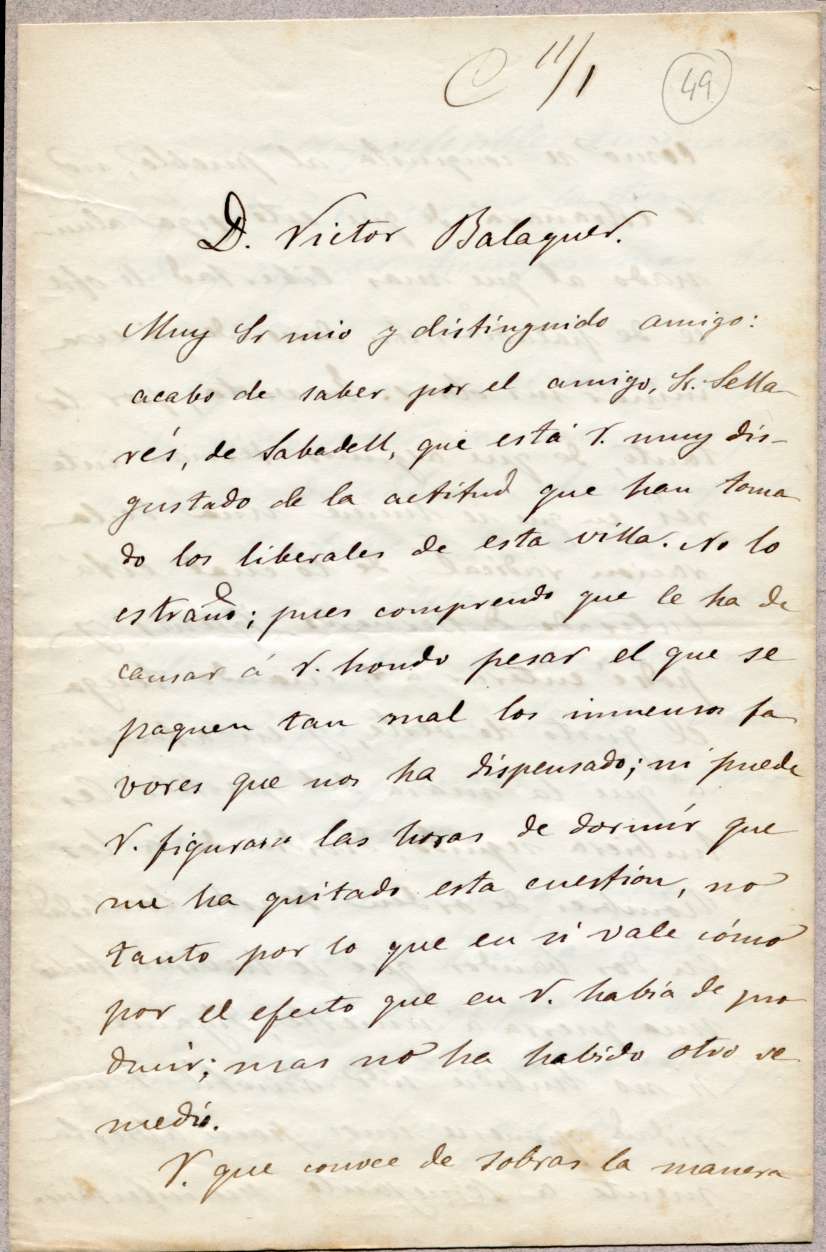 C 11/1 49
D. Victor Balaguer.
Muy Sr mio y distinguido amigo:
acabo de saber por el amigo, Sr. Sella-
rés, de Sabadell, que está V. muy dis-
gustado de la actitud que han toma-
do los liberales de esta villa. No lo
estraño; pues comprendo que le ha de
causar á V. hondo pesar el que se
paguen tan mal los inmensos fa-
vores que nos ha dispensado; ni puede
V. figurarse las horas de dormir que
me ha quitado esta cuestión, no
tanto por lo que en si vale cómo
por el efecto que en V. había de pro
ducir; mas no ha habido otro re-
medio.
V. que conoce de sobras la manera